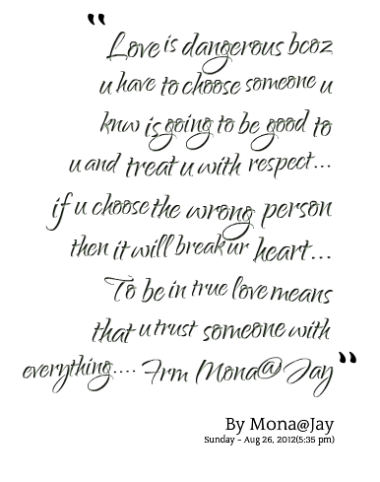 “
Love is dangerous bcoz
u have to choose someone u
knw is going to be good to
u and treat u with respect...
if u choose the wrong person
then it will break ur heart...
To be in true love means
that u trust someone with
everything.... Frm Mona@Jay ”
By Mona@Jay
Sunday - Aug 26, 2012(5:35 pm)